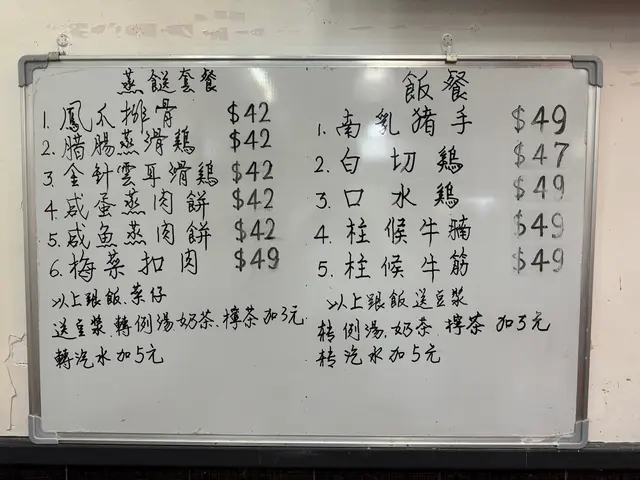 蒸餸套餐
1. 鳳爪排骨 $42
2. 腊腸蒸滑鷄 $42
3. 金針雲耳滑鷄 $42
4. 咸蛋蒸肉餅 $42
5. 咸魚蒸肉餅 $42
6. 梅菜扣肉 $49
以上跟飯、菜仔
送豆漿.轉例湯.奶茶.檸茶加3元
轉汽水加5元
飯餐
1. 南乳猪手 $49
2. 白切鷄 $47
3. 口水鷄 $49
4. 柱候牛腩 $49
5. 柱候牛筋 $49
以上跟飯送豆漿
转例湯.奶茶.檸茶加3元
转汽水加5元